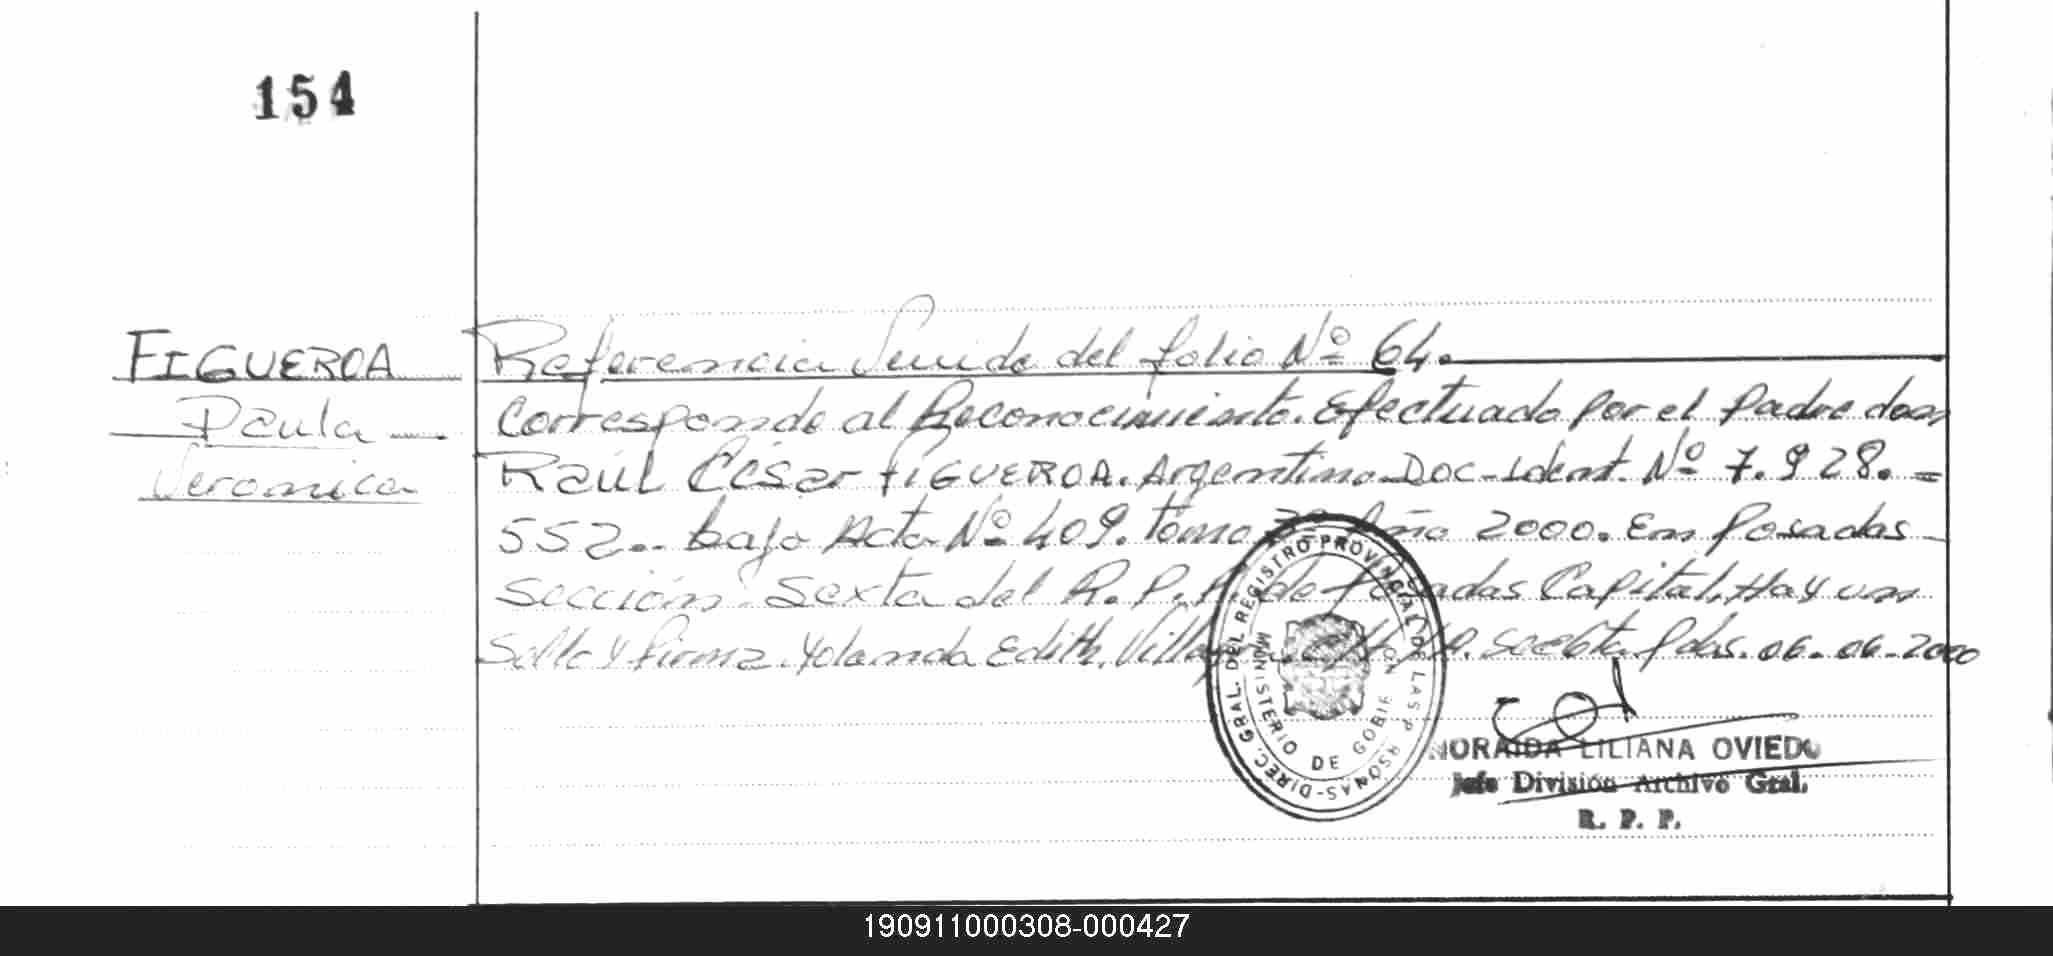 154
FIGUEROA
Paula
Veronica
Referencia del folio Nº 64.
Corresponde al Reconocimiento. Efectuado por el Padre don
Raúl César FIGUEROA. Argentino. Doc-Ident. Nº 7.928. =
552.. bajo Acta Nº 409. tomo Año 2000. En Posadas
Sección. Sexta del R. P. P. de Posadas Capital. Hay un
Sello y firma. Yolanda Edith. Pdas. 06-06-2000
DIREC. GRAL. DEL REGISTRO PROVINCIAL DE LAS P RSONAS-
MINISTERIO DE GOBIE ION
NORAIDA LILIANA OVIEDO
Jefe División Archivo Gral.
R. P. P.
190911000308-000427